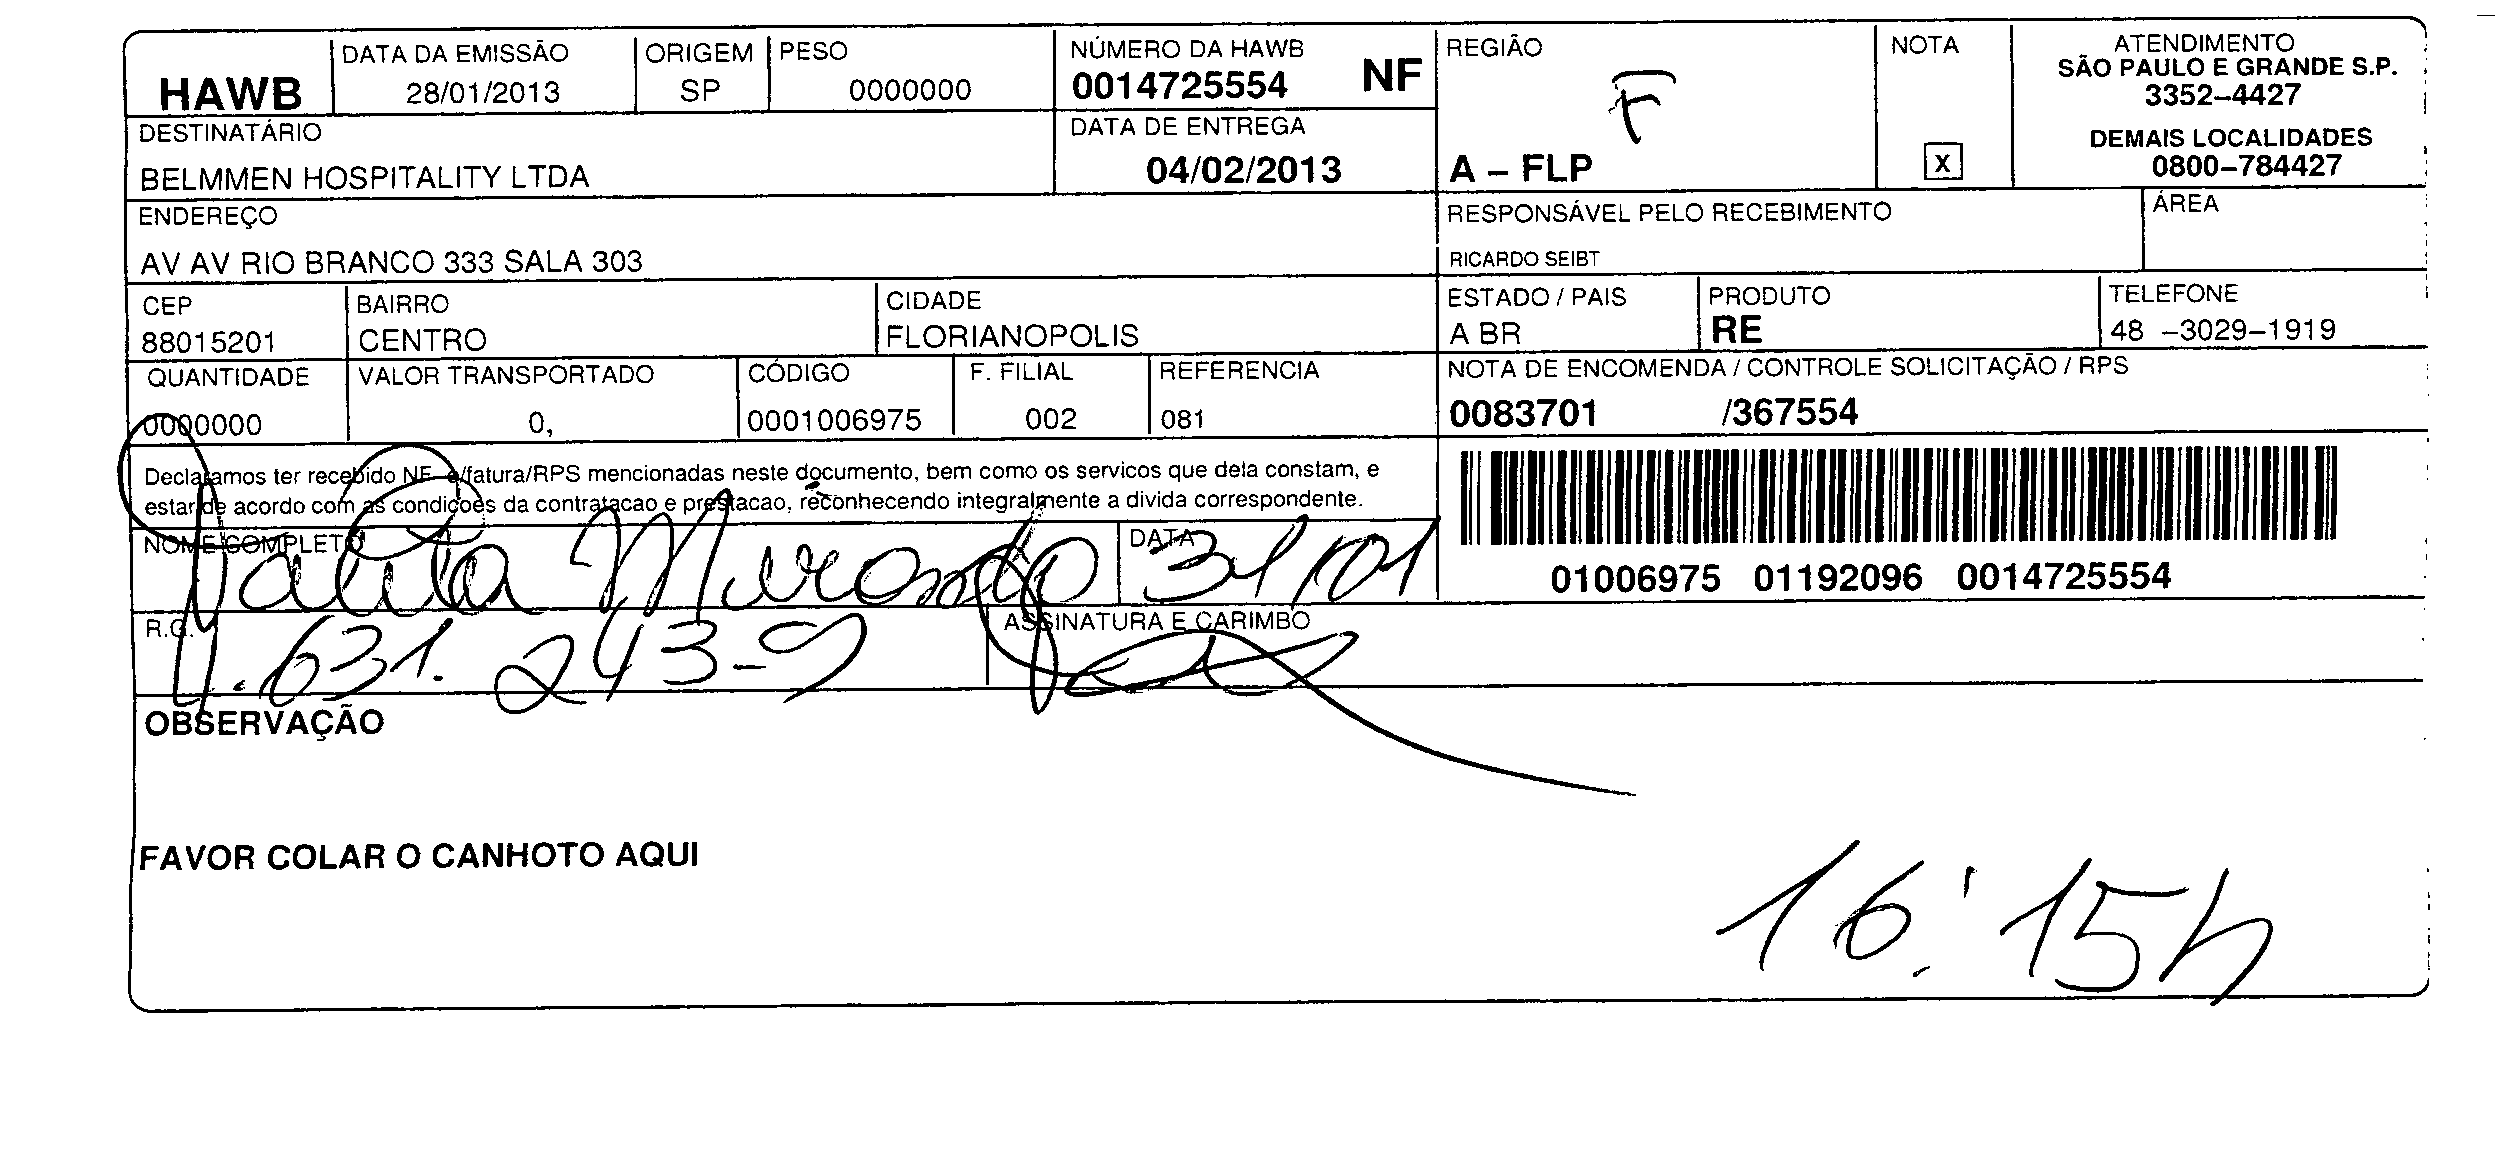 HAWB
DATA DA EMISSÃO
28/01/2013
ORIGEM
SP
PESO
0000000
NÚMERO DA HAWB
0014725554 NF
REGIÃO
F
A – FLP
NOTA
X
ATENDIMENTO
SÃO PAULO E GRANDE S.P.
3352–4427
DEMAIS LOCALIDADES
0800–784427
DESTINATÁRIO
BELMMEN HOSPITALITY LTDA
DATA DE ENTREGA
04/02/2013
ENDEREÇO
AV AV RIO BRANCO 333 SALA 303
RESPONSÁVEL PELO RECEBIMENTO
RICARDO SEIBT
ÁREA
CEP
88015201
BAIRRO
CENTRO
CIDADE
FLORIANOPOLIS
ESTADO / PAIS
A BR
PRODUTO
RE
TELEFONE
48 –3029–1919
QUANTIDADE
0000000
VALOR TRANSPORTADO
0,
CÓDIGO
0001006975
F. FILIAL
002
REFERENCIA
081
NOTA DE ENCOMENDA / CONTROLE SOLICITAÇÃO / RPS
0083701 /367554
Declaramos ter recebido NF-e/fatura/RPS mencionadas neste documento, bem como os servicos que dela constam, e
estar de acordo com as condiçoes da contratacao e prestacao, reconhecendo integralmente a divida correspondente.
NOME COMPLETO
DATA
31/01
01006975 01192096 0014725554
R.G.
.631.243-9
ASSINATURA E CARIMBO
OBSERVAÇÃO
FAVOR COLAR O CANHOTO AQUI
16:15h